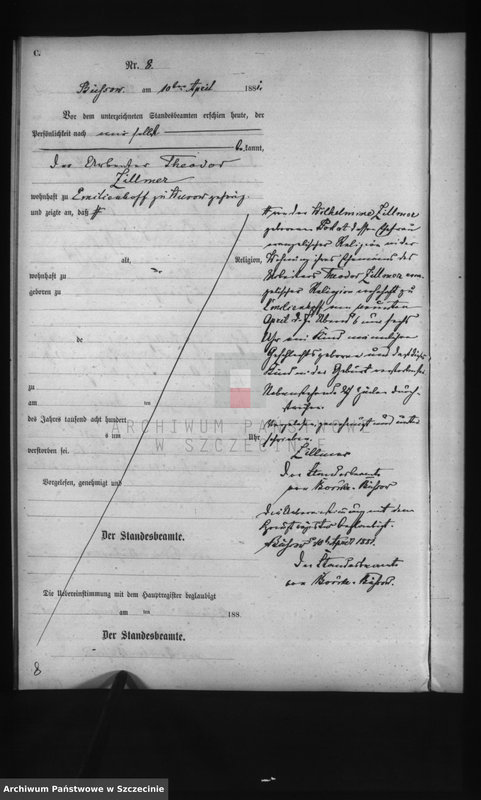 C.
Nr. 8.
am 10ten April 1881.
Vor dem unterzeichneten Standesbeamten erschien heute, der
Persönlichkeit nach
be kannt,
der Arbeiter Theodor
Zillmer
wohnhaft zu
und zeigte an, daß
alt, Religion,
wohnhaft zu
geboren zu
de
zu
am ten
des Jahrs tausend acht hundert
s um Uhr
verstorben sei.
Vorgelesen, genehmigt und
Der Standesbeamte.
Die Uebereinstimmung mit dem Hauptregister beglaubigt
am ten 188
Der Standesbeamte.
Wilhelmine Zillmer
geborene dessen Ehefrau
evangelischer Religion in der
Wohnung ihres Ehemannes des
Arbeiters Theodor Zillmer evan
gelischer Religion wohnhaft zu
am neunten
April d. J. Abends um sechs
Uhr ein Kind männlichen
Geschlechts geboren und daß dieses
Kind in der Geburt verstorben
Nebenstehende Zeilen durch
strichen.
Vorgelesen genehmigt und unter
schrieben.
Zillmer
Der Standesbeamte
Die Uebereinstimmung mit dem
Hauptregister beglaubigt.
10ten April 1881.
Der Standesbeamte
8
ARCHIWUM PAŃSTWOWE
W SZCZECINIE
Archiwum Państwowe w Szczecinie